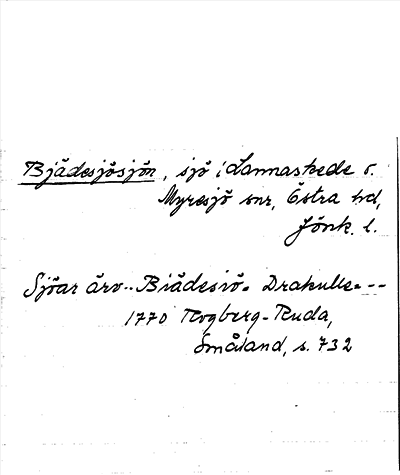 Bjädesjösjön, sjö i Lannaskede o.
Myresjö snr, Östra hd,
Jönk. l.
Sjöar äro -- Biädesiö- Drakulle- --
1770 Rogberg-Ruda,
Småland, s. 732